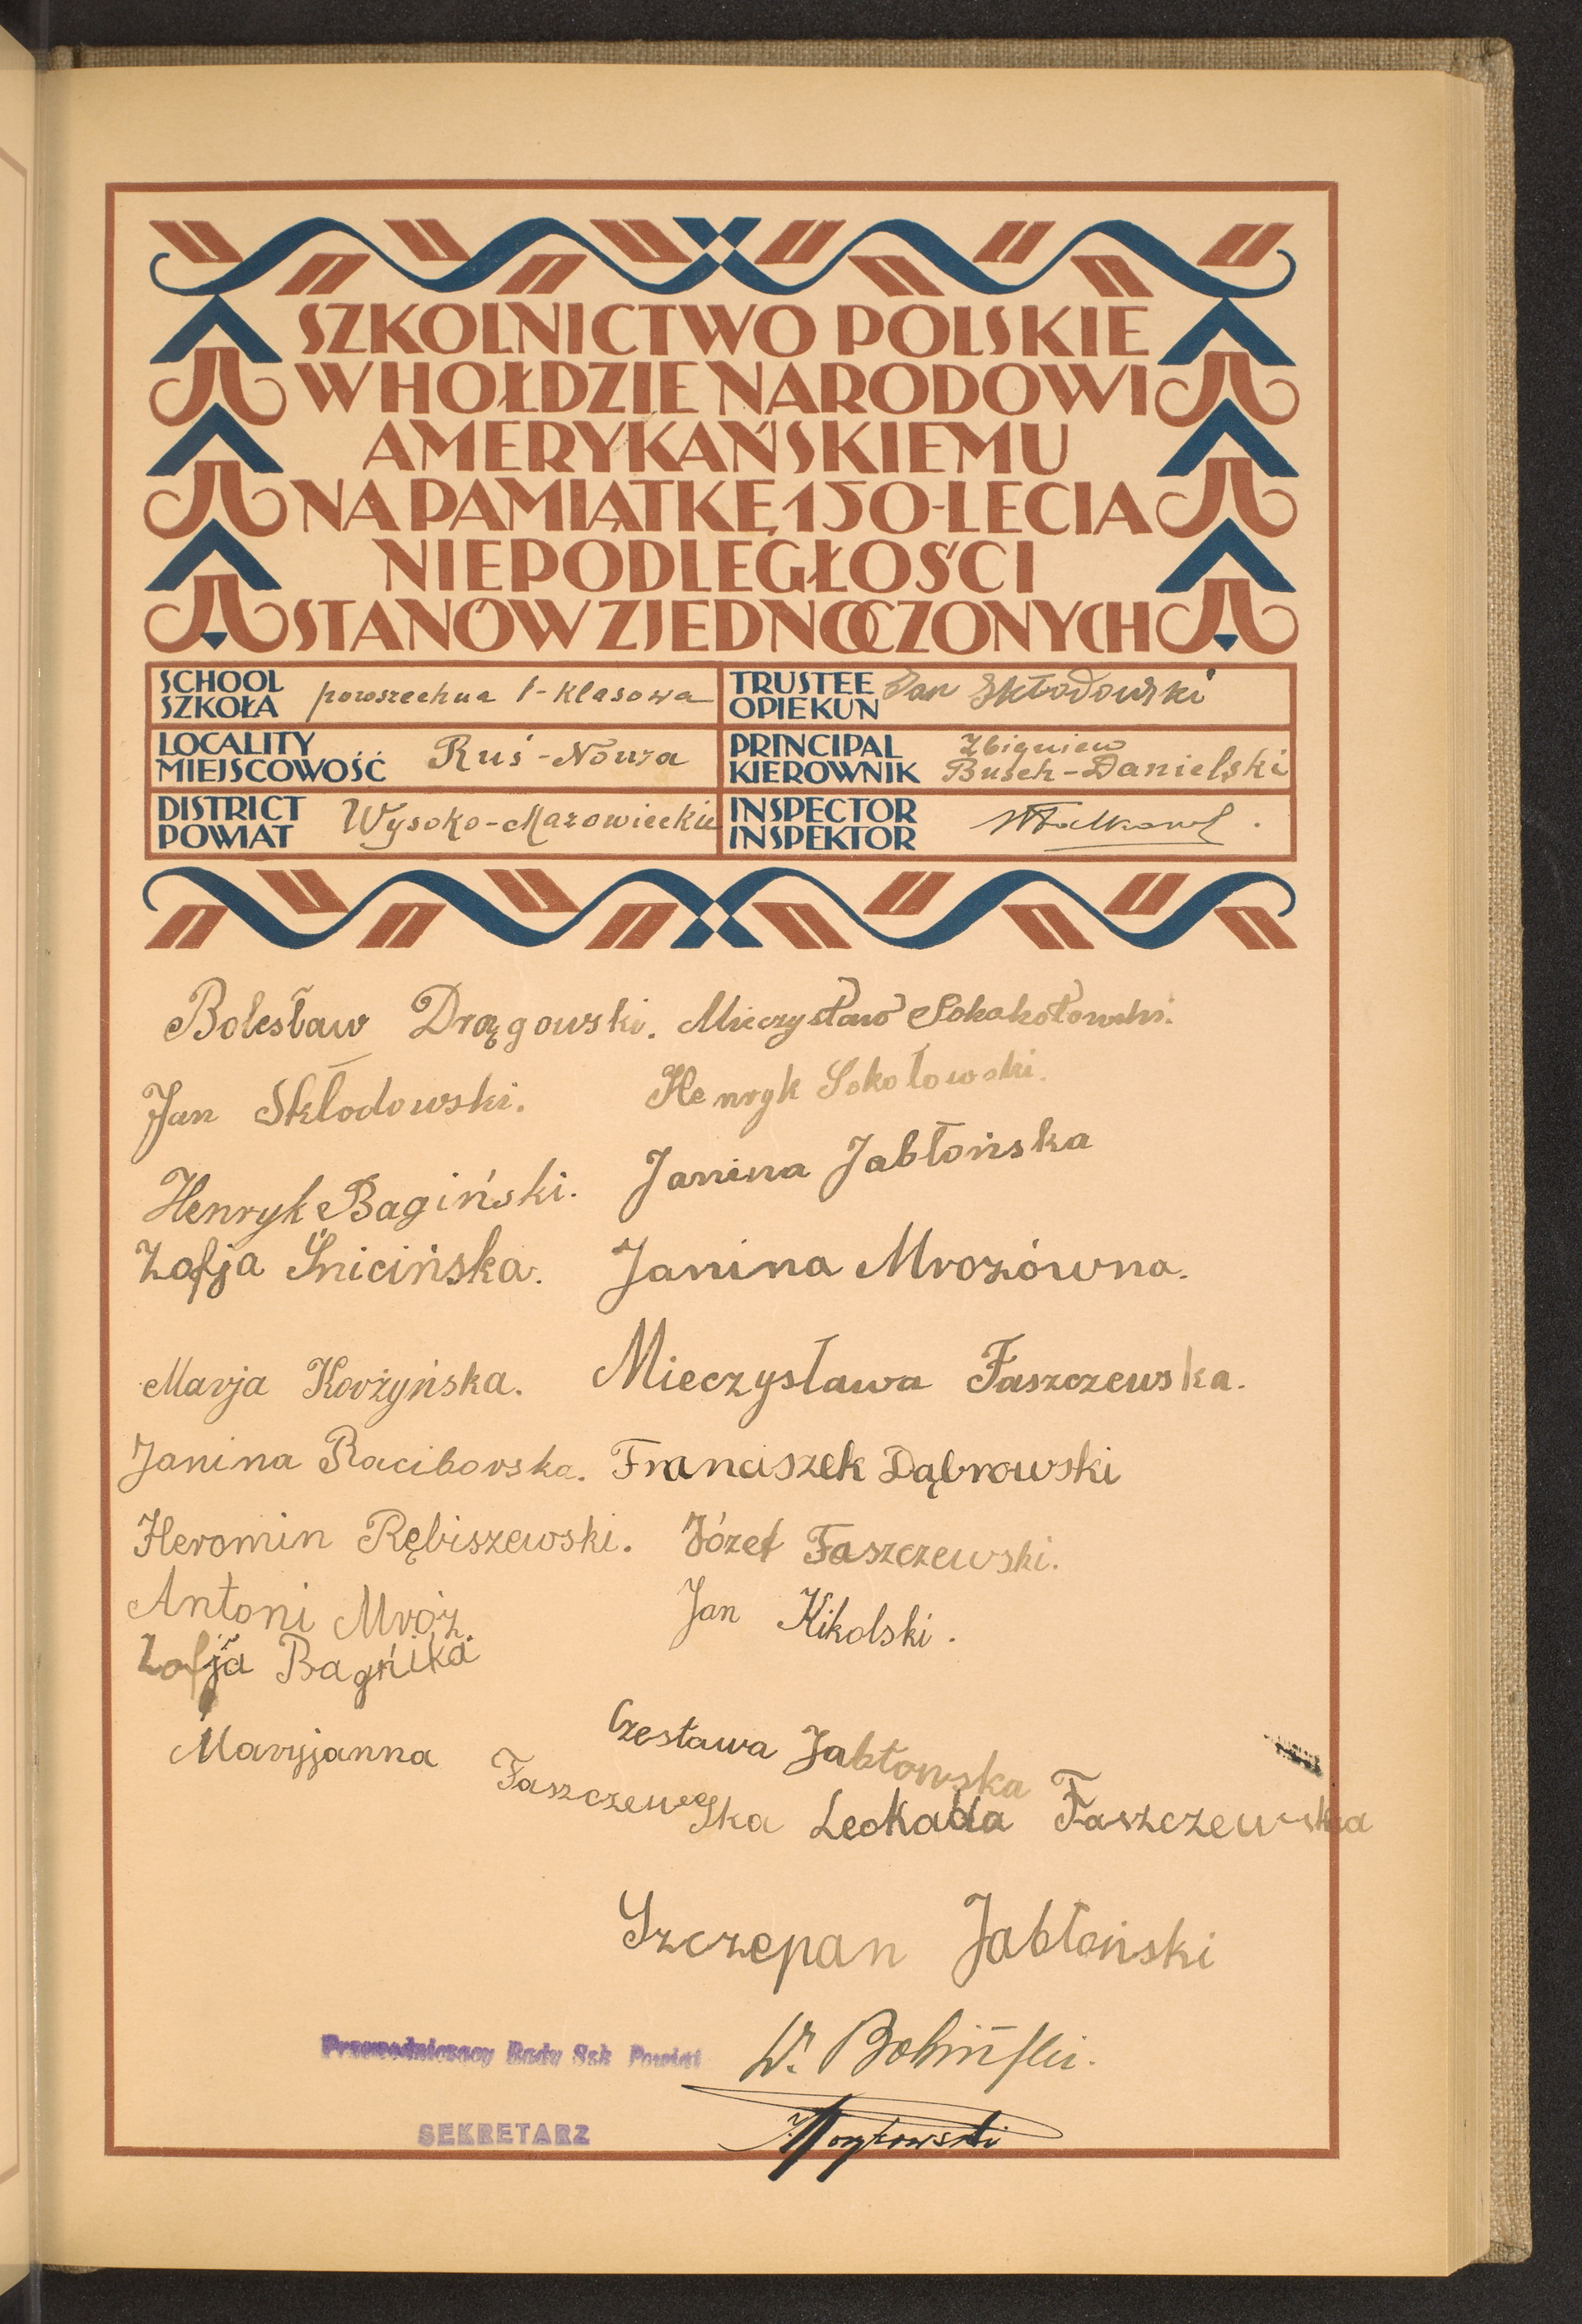 SZKOLNICTWO POLSKIE
W HOŁDZIE NARODOWI
AMERYKAŃSKIEMU
NA PAMIĄTKĘ 150-LECIA
NIEPODLEGŁOŚCI
STANÓW ZJEDNOCZONYCH
SCHOOL
SZKOŁA
powszechna 1-klasowa
TRUSTEE
OPIEKUN
Jan Skłodowski
LOCALITY
MIEJSCOWOŚĆ
Ruś-Nowa
PRINCIPAL
KIEROWNIK
Zbigniew
Busch-Danielski
DISTRICT
POWIAT
Wysoko-Mazowieckie
INSPECTOR
INSPEKTOR
Bolesław Drągowski. Mieczysław Sokakołowski.
Jan Skłodowski. Henryk Sokołowski.
Henryk Bagiński. Janina Jabłońska
Zofja Śnicińska. Janina Mrozówna.
Marja Korżyńska. Mieczysława Faszczewska.
Janina Raciborska. Franciszek Dąbrowski
Heromin Rębiszewski. Józef Faszczewski.
Antoni Mróz. Jan Kikolski.
Zofja Bagńika
Maryjanna Faszczewska
Czesława Jabłowska
Leokada Faszczewska
Szczepan Jabłoński
Przewodniczący Rady Szk Powiat
SEKRETARZ